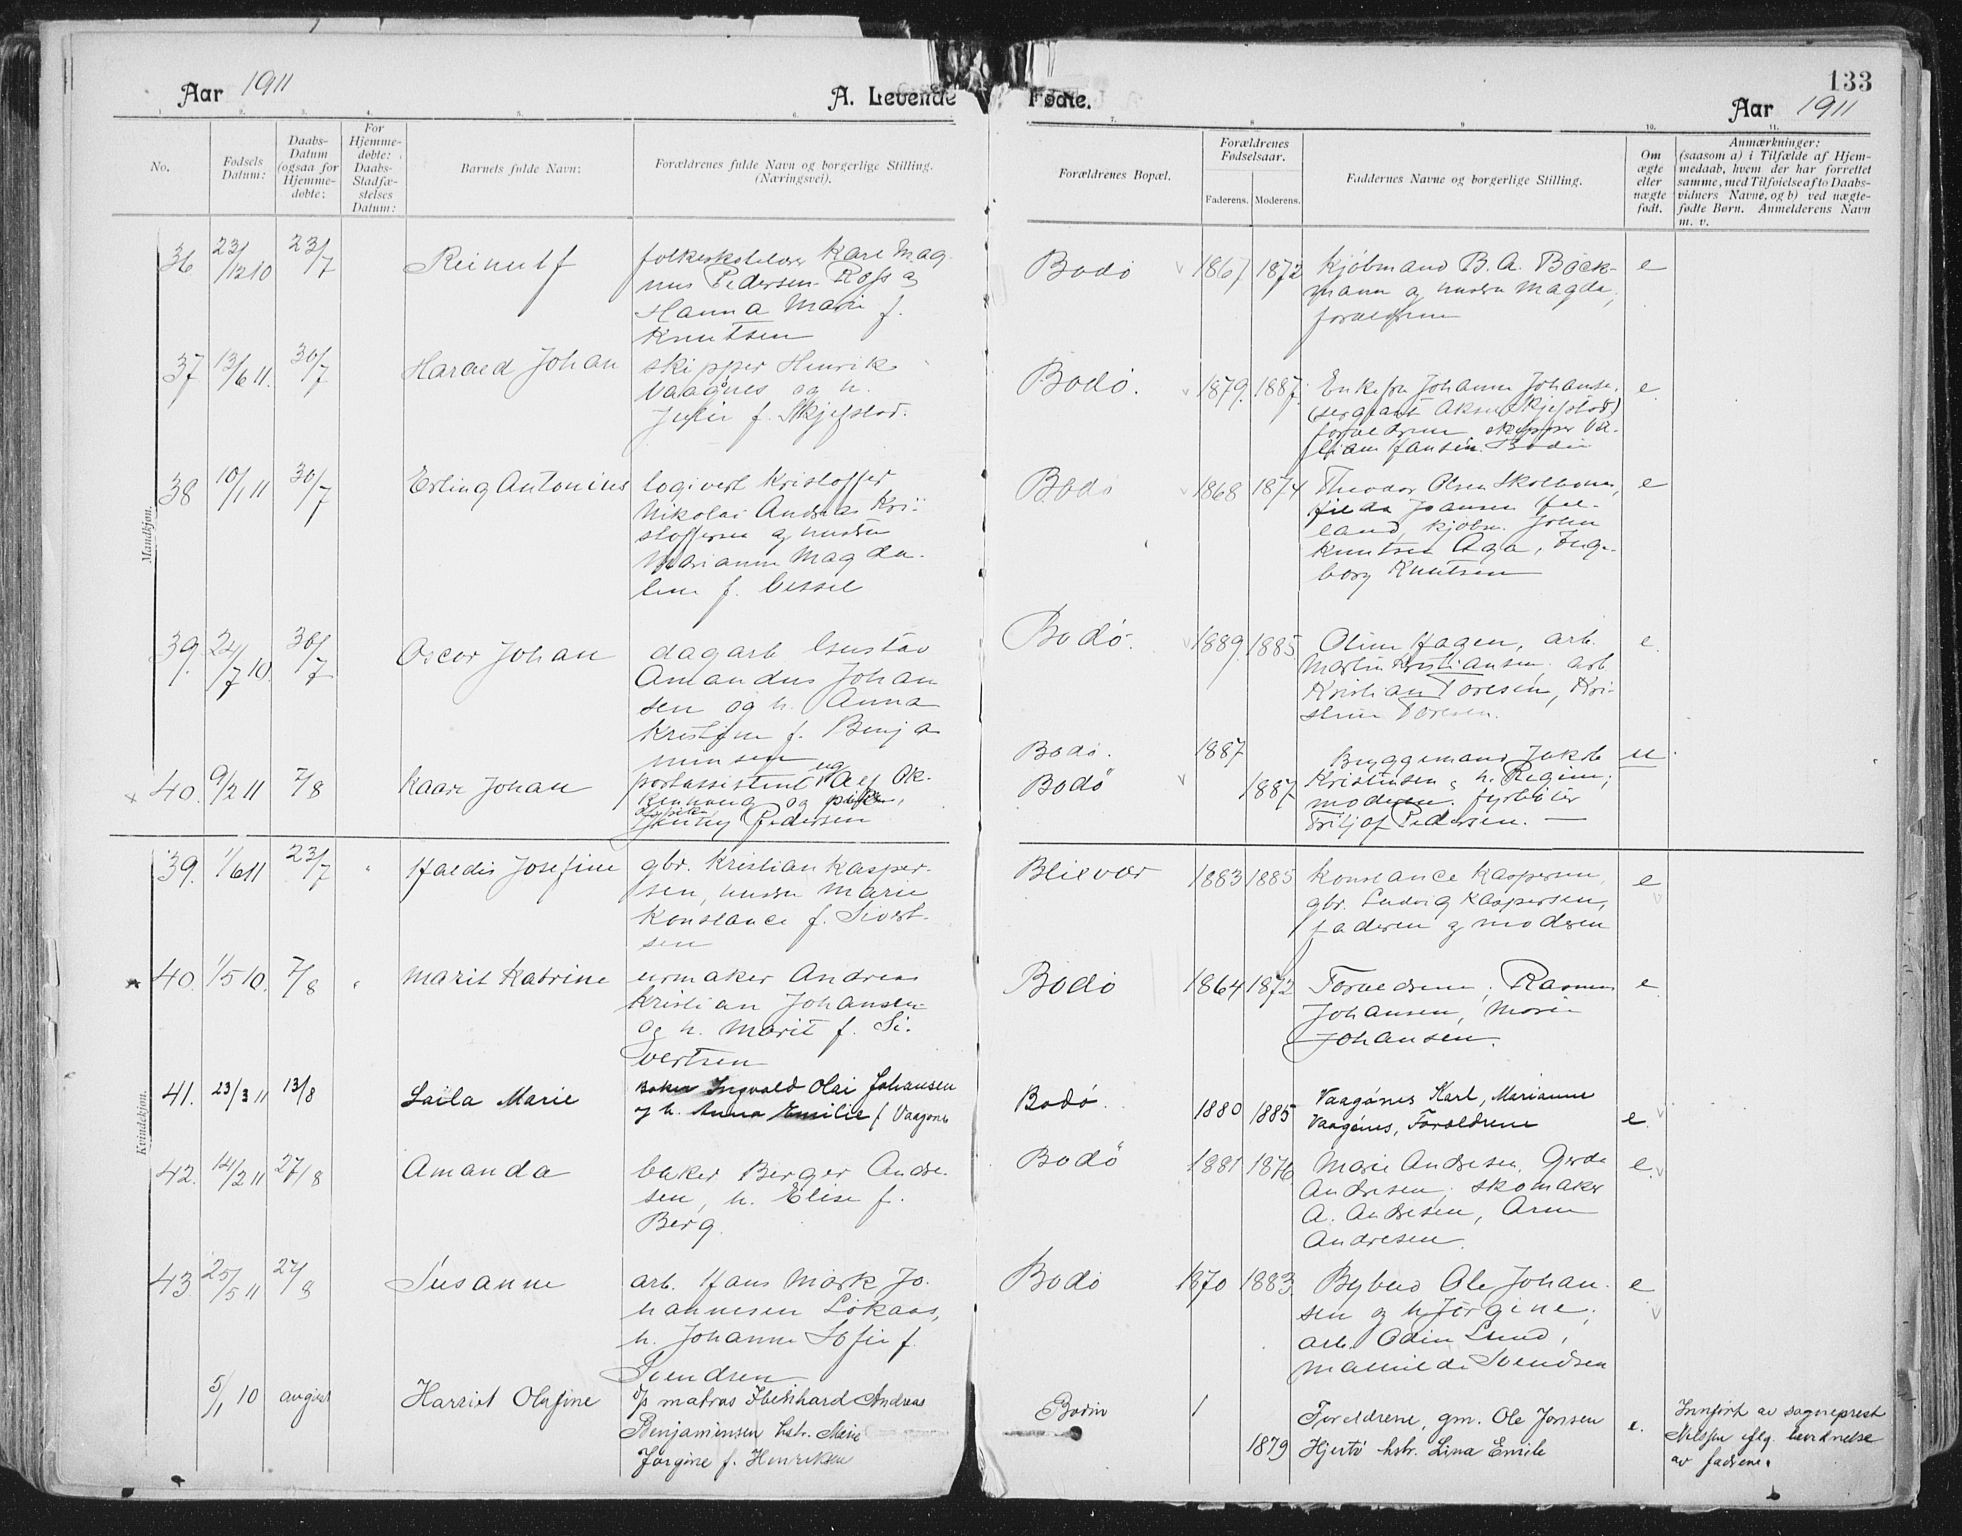 133
Aar 1911
A. Levende
Fødte.
Aar 1911
1. 2. 3. 4. 5. 6.
7. 8 9 10. 11.
No.
Fødsels
Datum:
Daabs-
Datum
(ogsaa for
Hjemme-
døbte:
For
Hjemme-
døbte:
Daabs-
Stadfæ-
stelses
Datum:
Barnets fulde Navn:
Forældrenes fulde Navn og borgerlige Stilling.
(Næringsvei).
Forældrenes Bopæl.
Forældrenes
Fødselsaar.
Faderens. Moderens.
Faddernes Navne og borgerlige Stilling.
Om
ægte
eller
uægte
født.
Anmærkninger:
(saasom a) i Tilfælde af Hjem-
medaab, hvem der har forrettet
samme, med Tilføielse af to Daabs-
vidners Navne, og b) ved uægte-
fødte Børn. Anmelderens Navn
m. v.
Mandkjøn.
36 23/12 10 23/7 Reinulf
folkeskolelærer Karl Mag-
nus Pedersen
Hanna Marie f.
Knutsen
Bodø 1867 1872
Kjøbmand B. A. Bøck-
mann og hustru Magda,
forældrene
e
37 13/6 11. 30/7 Harald Johan
skipper Henrik
Vaagnes og h.
Julie f. Skjefstad.
Bodø. 1879. 1887.
Enkefru Johanna Johanse.
(sergeant Skjefstad)
forældrene skipper Vil-
liam Hansen. Bodin
e.
38 10/1 11 30/7 Erling Antonius
logivert Kristoffer
Nikolai Andreas Kri-
stoffersen og hustru
Marianne Magda-
lene f. Cessil
Bodø 1868 1874
Theodor Olsen
kjøbm. John
Knutsen Aga, Inge-
borg Knutsen
e
39. 24/7 10. 30/7 Oscar Johan
dagarb Gustav
Amandus Johan
sen og h. Anna
Kristine f. Benja
minsen
Bodø. 1889. 1885
Oline Hagen, arb.
Martin Kristiansen, arb
Kristian Toresen, Kri-
stine Toresen.
e.
40. 9/2 11 7/8 Kaare Johan
portassistent
og
Jenny Pedersen
Bodø. 1887
Bodø 1887
Bryggemand Jakob
Kristensen, h. Regine;
moderen. fyrbøter
Fritjof Pedersen. —
u
Kvindekjøn.
39. 1/6 11 23/7 Haldis Josefine
gbr. Kristian Kasper-
sen, hustru Marie
Konstance f. Sivert-
sen
Blievær 1883 1885
Konstance Kaspersen,
gbr. Ludvig Kaspersen,
faderen og moderen
e
40. 1/5 10. 7/8 Marit Katrine
urmaker Andreas
Kristian Johansen
og h. Marit f. Si-
vertsen
Bodø 1864 1872
Forældrene, Rasmus
Johansen, Marie
Johansen.
e.
41. 23/3 11 13/8 Laila Marie
Baker Ingvald Olai Johansen
og h. Anna Emilie f. Vaagønes
Bodø. 1880 1885
Vaagønes Karl, Marianne
Vaagønes, Forældrene
e.
42. 14/2 11 27/8 Amanda
baker Berger Andre-
sen, h. Elise f.
Berg.
Bodø 1881 1876
Marie Andresen, Gerda
Andresen, skomaker
A. Andresen, Arne
Andresen.
e.
43 25/5 11 27/8 Susanne
arb. Hans Mørk Jo-
hannesen Løkaas,
h. Johanne Sofie f.
Svendsen
Bodø 1870 1883
Bybud Ole Johan-
sen og h. Jørgine,
arb. Odin Lund,
Mathilde Svendsen
e
5/1 10 august Harriet Olufine
matros Andreas
Benjaminsen hstr. Marie
Jørgine f. Henriksen
Bodin 1879
Foreldrene, gm. Ole Jonsen
Hjertø hstr. Lina Emilie
e.
Innført av sogneprest
Nilssen iflg. bevidnelse
av fadrene.